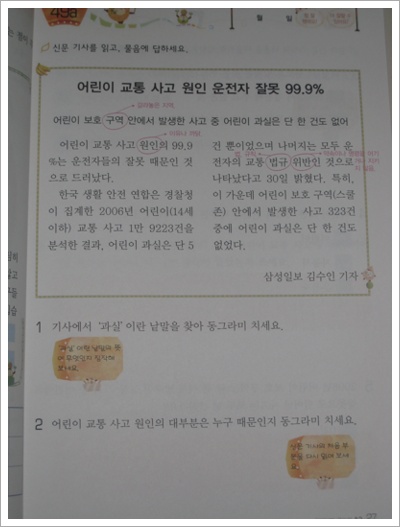 49a
월 일
신문 기사를 읽고, 물음에 답하세요.
어린이 교통 사고 원인 운전자 잘못 99.9%
어린이 보호 구역 안에서 발생한 사고 중 어린이 과실은 단 한 건도 없어
어린이 교통 사고 원인의 99.9
%는 운전자들의 잘못 때문인 것으
로 드러났다.
한국 생활 안전 연합은 경찰청
이 집계한 2006년 어린이(14세
이하) 교통 사고 1만 9223건을
분석한 결과, 어린이 과실은 단 5
건 뿐이었으며 나머지는 모두 운
전자의 교통 법규 위반인 것으로
나타났다고 30일 밝혔다. 특히,
이 가운데 어린이 보호 구역(스쿨
존) 안에서 발생한 사고 323건
중에 어린이 과실은 단 한 건도
없었다.
삼성일보 김수인 기자
1 기사에서 '과실'이란 낱말을 찾아 동그라미 치세요.
'과실'이란 낱말의 뜻
이 무엇인지 생각해
보세요.
2 어린이 교통 사고 원인의 대부분은 누구 때문인지 동그라미 치세요.
신문 기사의 처음 부
분을 다시 읽어 보세
요.